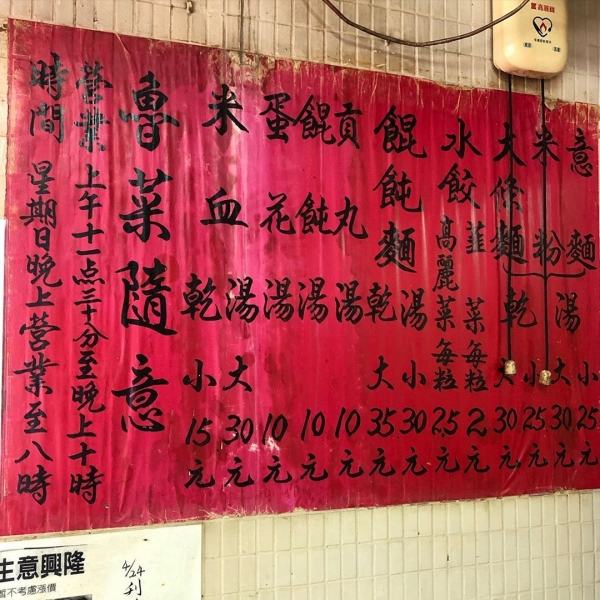 意麵
米粉
大條麵
湯
乾
小25元
大30元
小25元
大30元
水餃
韮菜每粒2元
高麗菜每粒2.5元
餛飩麵
湯
小30元
乾
大35元
貢丸湯10元
餛飩湯10元
蛋花湯10元
米血
湯
大30元
乾
小15元
魯菜隨意
營業時間
上午十一点三十分至晚上十時
星期日晚上營業至八時
生意興隆
暫不考慮漲價
4/24